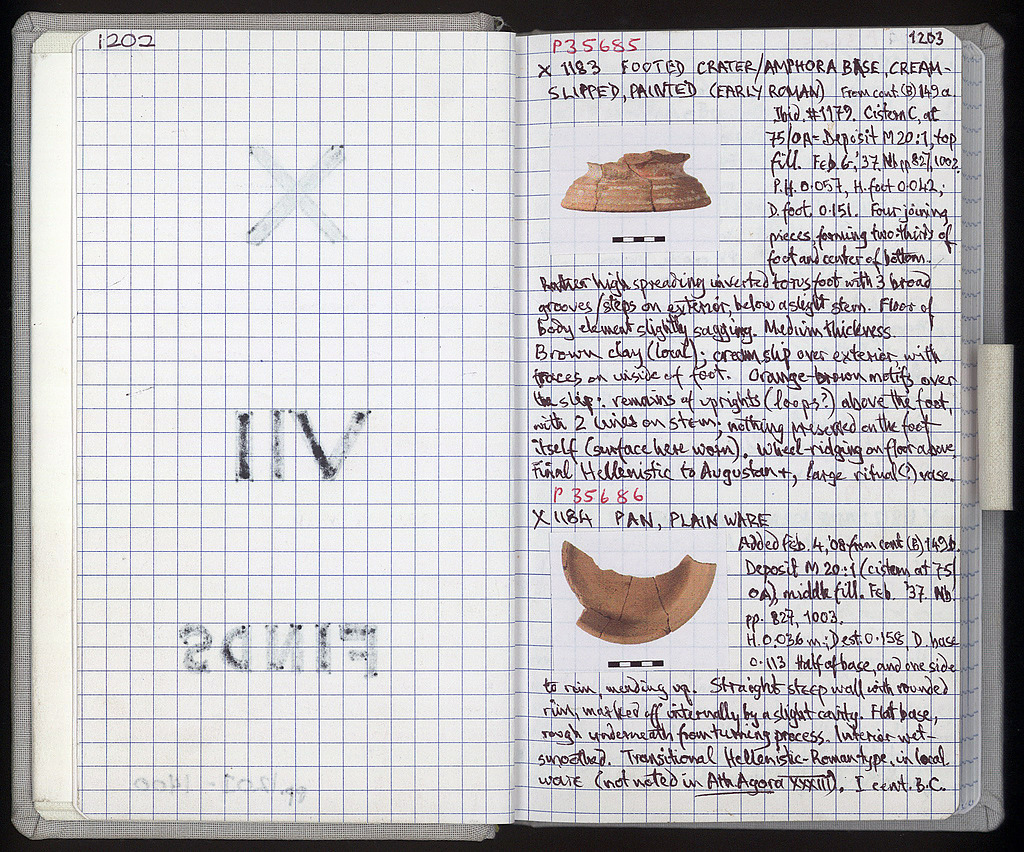 1202
X
VII
FINDS
pp. 1201-1400
1203
P35685
X 1183 FOOTED CRATER/AMPHORA BASE, CREAM-
SLIPPED, PAINTED (EARLY ROMAN) From cont. (B) 149a.
Ibid. #1179. Cistern C, at
75/OA = Deposit M 20:1, top
fill. Feb. 6, '37. Nb. pp. 827, 1002.
P.H. 0.057, H. foot 0.042,
D. foot 0.151. Four joining
pieces, forming two-thirds of
foot and center of bottom.
Rather high spreading inverted torus foot with 3 broad
grooves/steps on exterior, below a slight stem. Floor of
body element slightly sagging. Medium thickness.
Brown clay (local); cream slip over exterior, with
traces on inside of foot. Orange-brown motifs over
the slip: remains of uprights (loops?) above the foot,
with 2 lines on stem; nothing preserved on the foot
itself (surface here worn). Wheel-ridging on floor above.
Final Hellenistic to Augustan +, large ritual (?) vase.
P 35686
X 1184 PAN, PLAIN WARE
Added Feb. 4, '08 from cont. (B) 149b.
Deposit M 20:1 (cistern at 75/
OA), middle fill. Feb. '37. Nb.
pp. 827, 1003.
H. 0.036 m.; D est. 0.158, D. base
0.113 Half of base, and one side
to rim, mending up. Straight steep wall with rounded
rim, marked off internally by a slight cavity. Flat base,
rough underneath from turning process. Interior wet-
smoothed. Transitional Hellenistic-Roman type, in local
ware (not noted in Ath Agora XXXIII). I cent. B.C.